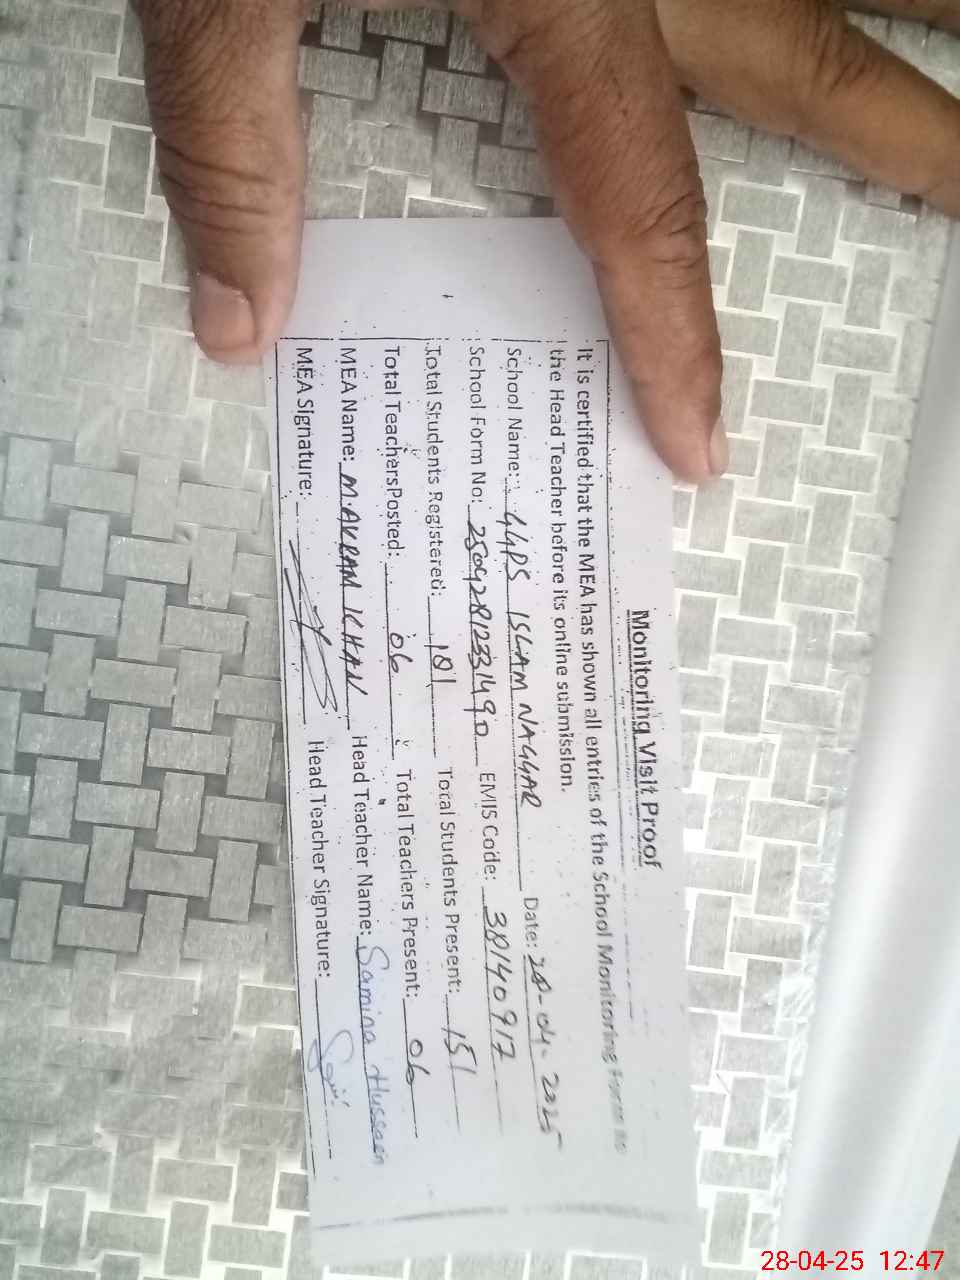 Monitoring Visit Proof
It is certified that the MEA has shown all entries of the School Monitoring Form to
the Head Teacher before its online submission.
School Name: GGPS ISLAM NAGGAR Date: 28-04-2025
School Form No: 25042812331490 EMIS Code: 38140917
Total Students Registered: 181 Total Students Present: 151
Total Teachers Posted: 06 Total Teachers Present: 06
MEA Name: M.AKRAM KHAN Head Teacher Name: Samina Hussain
MEA Signature: Head Teacher Signature:
28-04-25 12:47